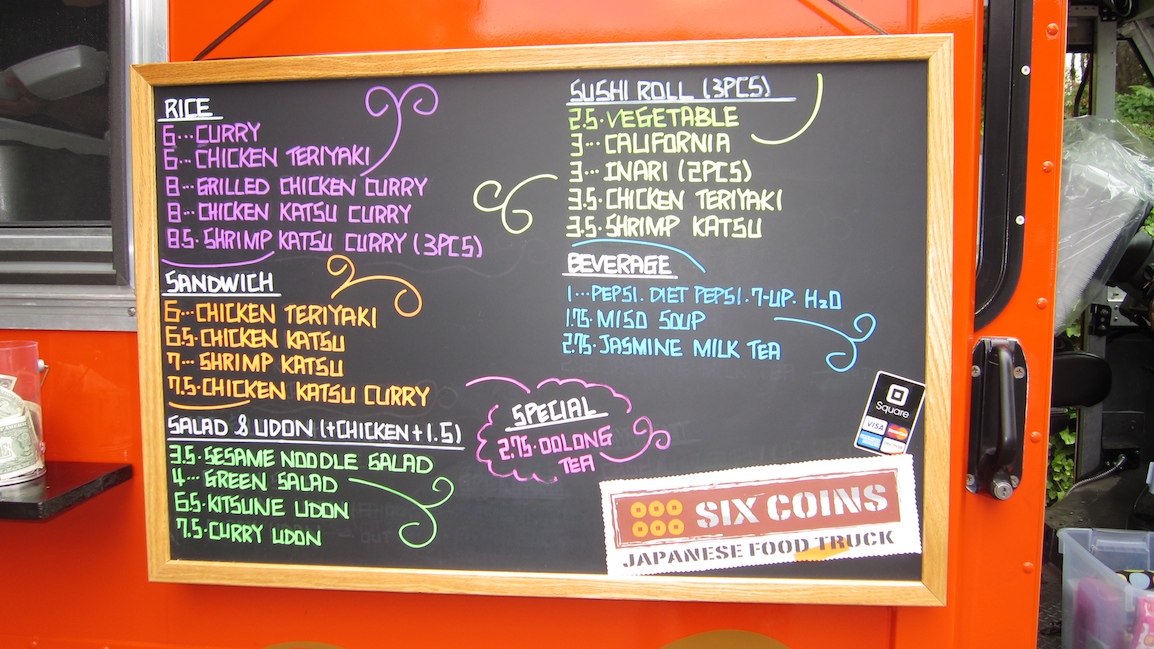 RICE
6...CURRY
6...CHICKEN TERIYAKI
8...GRILLED CHICKEN CURRY
8...CHICKEN KATSU CURRY
8.5.SHRIMP KATSU CURRY (3PCS)
SANDWICH
6...CHICKEN TERIYAKI
6.5.CHICKEN KATSU
7...SHRIMP KATSU
7.5.CHICKEN KATSU CURRY
SALAD & UDON (+CHICKEN+1.5)
3.5.SESAME NOODLE SALAD
4...GREEN SALAD
6.5.KITSUNE UDON
7.5.CURRY UDON
SUSHI ROLL (3PCS)
2.5.VEGETABLE
3...CALIFORNIA
3...INARI (2PCS)
3.5.CHICKEN TERIYAKI
3.5.SHRIMP KATSU
BEVERAGE
1...PEPSI.DIET PEPSI.7-UP.H2O
1.75.MISO SOUP
2.75.JASMINE MILK TEA
SPECIAL
2.75.OOLONG
TEA
Square
VISA
SIX COINS
JAPANESE FOOD TRUCK